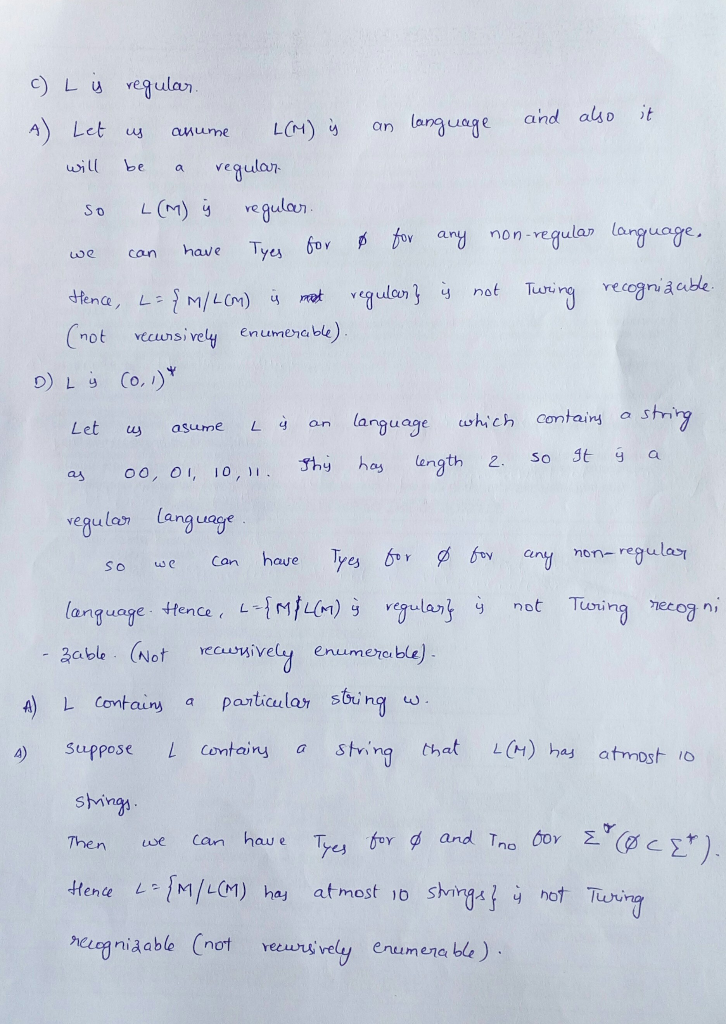 C) L is regular.
A) Let us assume L(M) is an language and also it
will be a regular.
So L(M) is regular.
we can have Tyes for ∅ for any non-regular language.
Hence, L = {M/L(M) is regular} is not Turing recognizable.
(not recursively enumerable).
D) L is (0,1)*
Let us asume L is an language which contains a string
as 00, 01, 10, 11. This has length 2. So It is a
regular language.
So we can have Tyes for ∅ for any non-regular
language. Hence, L={M/L(M) is regular} is not Turing recogni
-zable. (Not recursively enumerable).
A) L contains a particular string w.
A) Suppose L contains a string that L(M) has atmost 10
strings.
Then we can have Tyes for ∅ and Tno for Σ* (∅ ⊂ Σ*).
Hence L = {M/L(M) has atmost 10 strings} is not Turing
recognizable (not recursively enumerable).